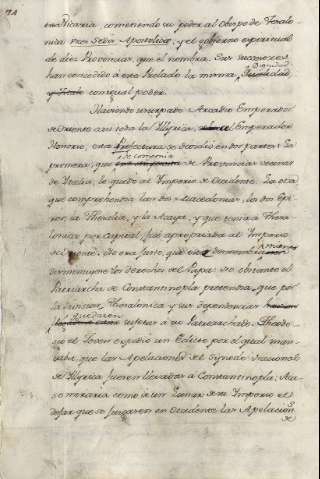 cometiendo su poder al Obispo de Tesalo-
nica vice Sedis Apostolica, y el gobierno espiritual
de diez Provincias, que el nombra. Sus successores
han concedido à este Prelado la misma,
con igual poder.
Haviendo usurpado Arcadio Emperador
de Oriente à toda la Illyria, Emperador
Honorio, esta Prefectura se dividió en dos partes: La
primera, que de Provincias vecinas
de Italia, le quedó al Imperio de Occidente. La otra
que comprehendia las dos Macedonias, los dos Epi-
ros, la Thesalia, y la Acaya, y que tenia à Thesa-
lonica por capital, fue apropiada al Imperio
de Oriente. No era justo, que
los derechos del Papa: no obstante el
Patriarcha de Constantinopla pretendia, que por
la division Thesalonica y sus dependencias
quedaren sujetas à su Patriarchado. Theodo-
sio el Joven expidió un Edicto por el qual man-
daba, que las Apelaciones del Synodo Nacional
de Illyria fuesen llevadas à Constantinopla:
como à un en su Imperio el
dejar que se juzgasen en Occidente las Apelacion